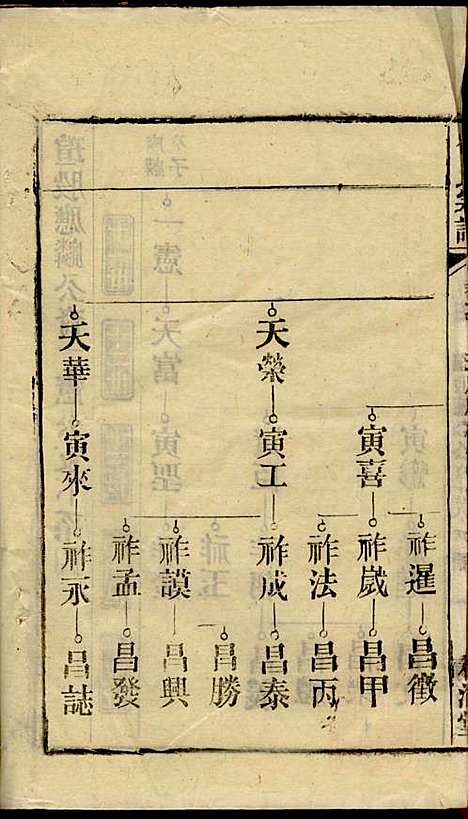 寅喜
祚暹
祚歲
祚法
昌徵
昌甲
昌丙
天榮
寅工
祚成
祚謨
祚孟
昌泰
昌勝
昌興
昌發
天華
寅來
祚永
昌誌